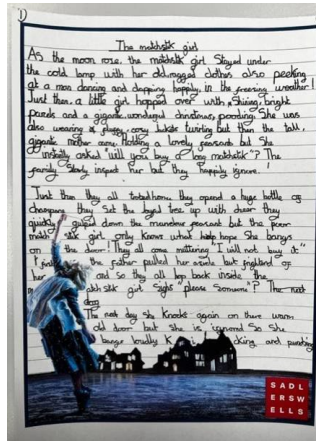 1)
The matchstik girl
As the moon rose, the matchstik girl Stayed under
the cold lamp with her old ragged clothes also peeking
at a man dancing and clapping happily, in the freezing weather!
Just then, a little girl hopped over with, Shining, bright
parents and a gigantic, wonderful christmas, pooding. She was
also wearing a fluffy, cosy twirling but then the tall,
gigantic mother come Holding a lovely peasants but She
instantly asked "will you buy a long matchstik"? The
family Slowly inspect her but they happily ignore!
Just then they all home, they opend a huge bottle of
they Set the up with cheer they
quickly gulped down the peasant but the poor
match stik girl only knows what hope. She bangs
on the door! They all come muttering "I will not buy it"
the Father pulled her aside but
her and so they all hop back inside the
stik girl Sighs "please Someone"? The next
The next day she knocks again on there warm
old door but she is ignored So she
bangs loudly K king and punching
SADL
ERSW
ELLS